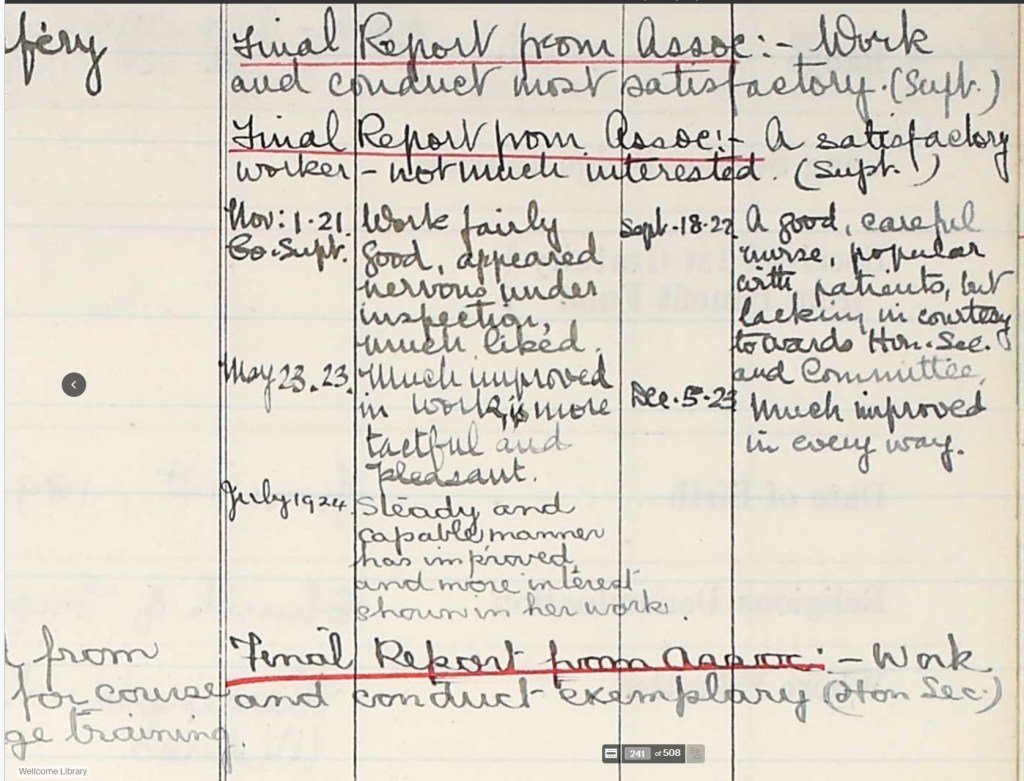 fery
Final Report from Assoc:- Work
and conduct most satisfactory. (Supt.)
Final Report from Assoc:- A satisfactory
worker - not much interested. (Supt.)
Nov: 1.21.
Co. Supt.
Work fairly
good, appeared
nervous under
inspection,
much liked.
May 23.23.
Much improved
in work, is more
tactful and
pleasant.
July 1924.
Steady and
capable, manner
has improved,
and more interest
shown in her work.
Sept. 18.22
A good, careful
nurse, popular
with patients, but
lacking in courtesy
towards Hon. Sec.
and Committee.
Dec. 5.23
Much improved
in every way.
from
for course
ge training.
Final Report from Assoc: - Work
and conduct exemplary (Hon Sec.)
241 of 508
Wellcome Library